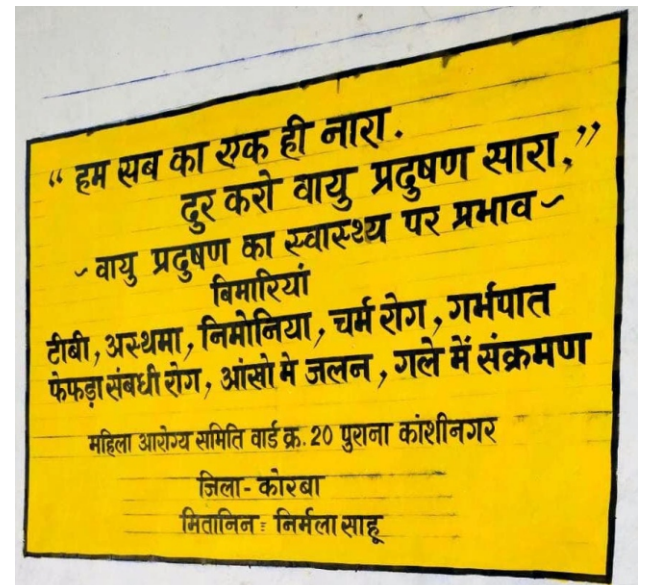 “ हम सब का एक ही नारा.
दुर करो वायु प्रदुषण सारा.”
~ वायु प्रदुषण का स्वास्थ्य पर प्रभाव ~
बिमारियां
टीबी, अस्थमा, निमोनिया, चर्म रोग, गर्भपात
फेफड़ा संबधी रोग, आंखो मे जलन, गले में संक्रमण
महिला आरोग्य समिति वार्ड क्र. 20 पुराना कांशीनगर
जिला - कोरबा
मितानिन = निर्मला साहू